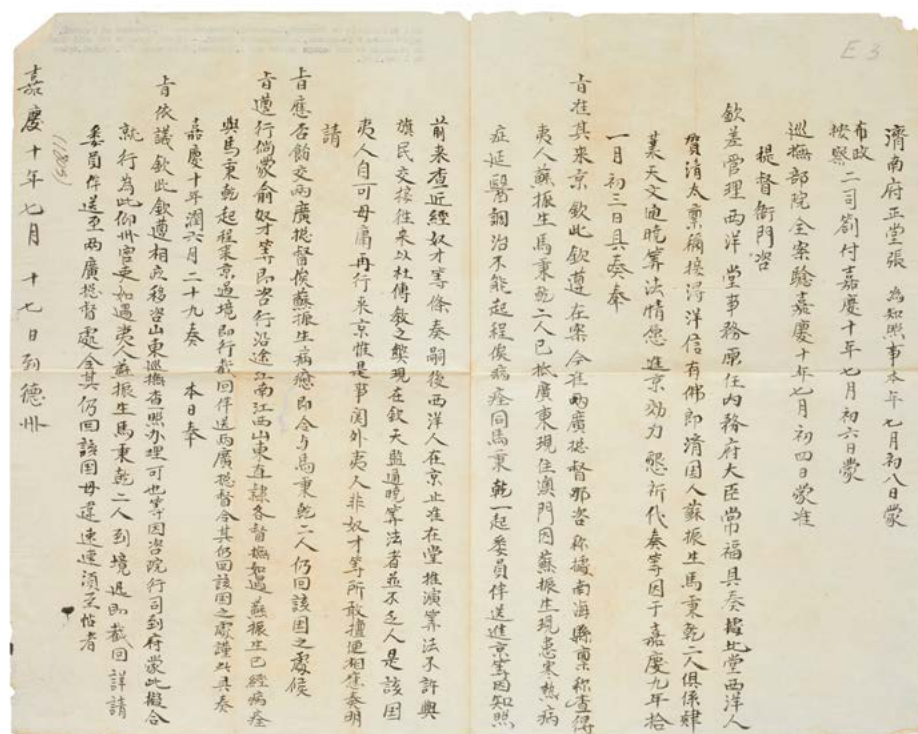 E 3
濟南府正堂張 為知照事本年七月初八日蒙
布政
按察 二司劄付嘉慶十年七月初六日蒙
巡撫部院全案驗嘉慶十年七月初四日蒙准
提督衙門咨
欽差管理西洋堂事務原任內務府大臣常福具奏據北堂西洋人
賀清太稟稱接得洋信有佛郎濟國人蘇振生馬秉乾二人俱係肄
業天文通曉筭法情愿進京効力懇祈代奏等因于嘉慶九年拾
一月初三日具奏奉
旨准其來京欽此欽遵在案今准兩廣提督那咨称據南海縣稟称查得
夷人蘇振生馬秉乾二人已抵廣東現住澳門因蘇振生現患寒熱病
症延醫調治不能起程俟病痊同馬秉乾一起委員伴送進京等因知照
前來查近經奴才等條奏嗣後西洋人在京止准在堂推演筭法不許與
旗民交接往來以杜傳教之獘現在欽天監通曉筭法者並不乏人是該國
夷人自可毋庸再行來京惟是事関外夷人非奴才等所敢擅便相應奏明
請
旨應否飭交兩廣提督俟蘇振生病癒即令与馬秉乾二人仍回該國之處候
旨遵行倘蒙俞奴才等即咨行沿途江南江西山東直隸各督撫如遇蘇振生已經病痊
與馬秉乾起程來京過境即行截回伴送兩廣提督令其仍回該國之處謹此具奏
嘉慶十年潤六月二十九奏 本日奉
旨依議欽此欽遵相应移咨山東巡撫查照办理可也等因咨院行司到府蒙此擬合
就行為此仰州官吏如遇夷人蘇振生馬秉乾二人到境迅即截回詳請
委員伴送至兩廣提督處令其仍回該國毋違速速須至帖者
嘉慶十年七月 十七日到德州
(1811)